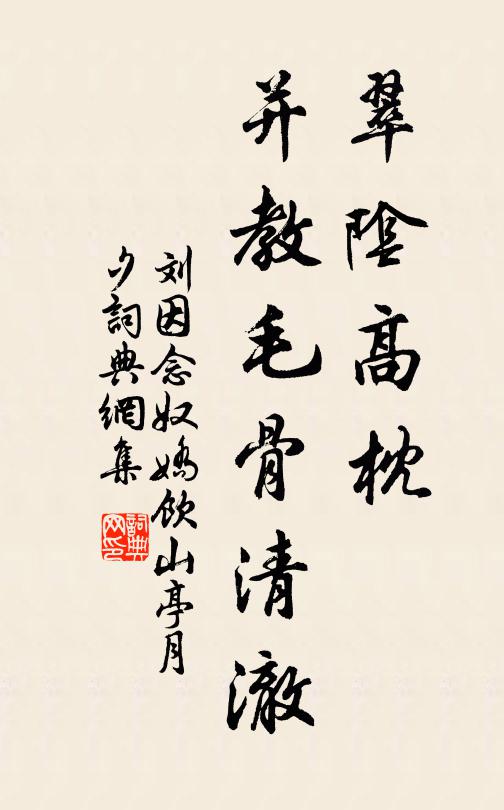 翠陰高枕
并教毛骨清澈
刘因念奴嬌飲山亭月
夕詞典網集
詞典
网印